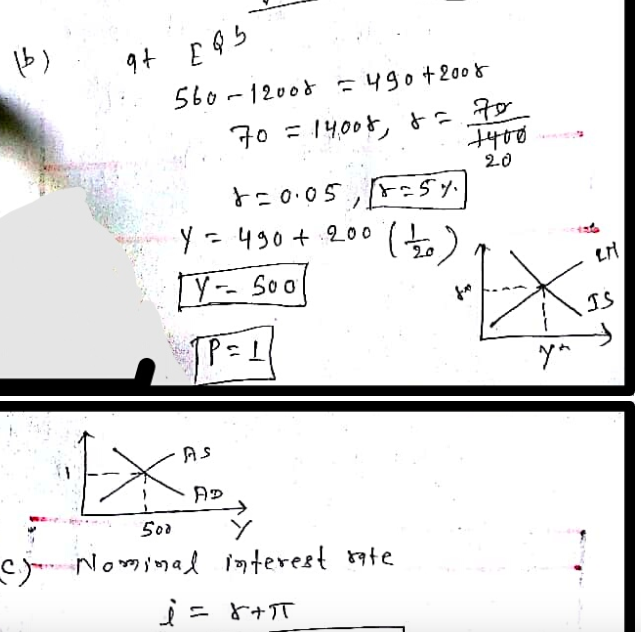 (b) at EQb
560 - 1200r = 490 + 200r
70 = 1400r, r = 70/1400
20
r = 0.05, r = 5%
Y = 490 + 200 (1/20)
Y = 500
P = 1
LM
IS
r*
Y*
AS
AD
1
500
Y
(c) Nominal interest rate
i = r + π